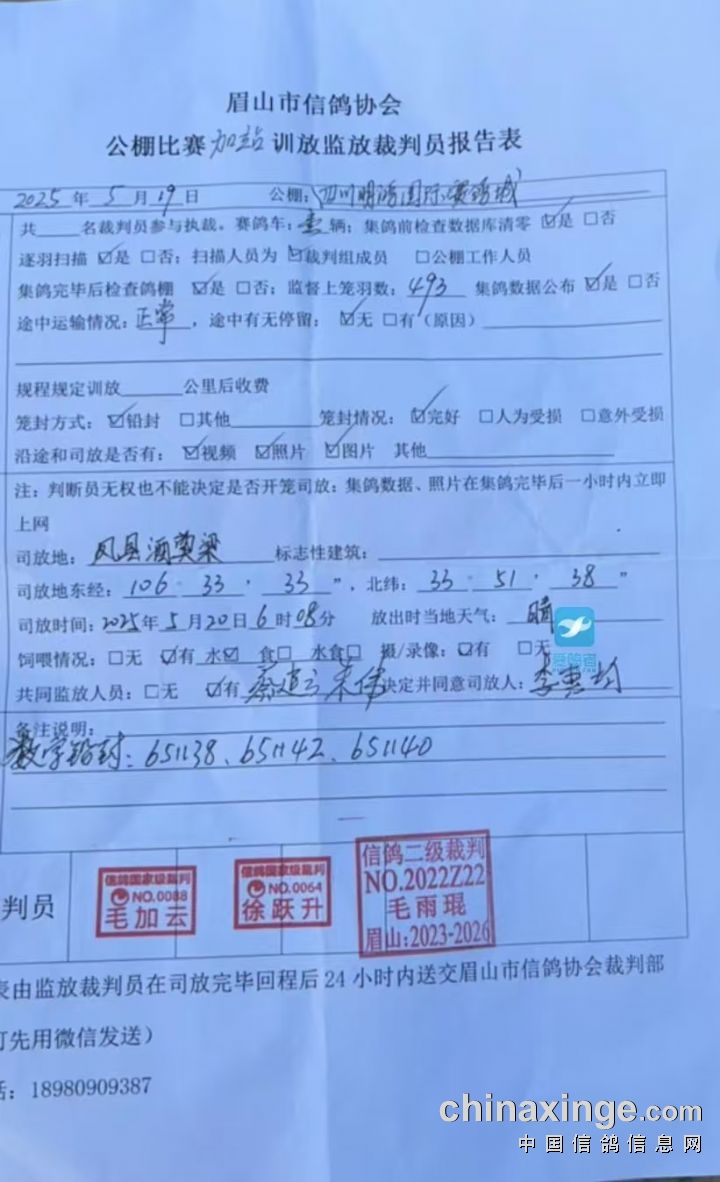 眉山市信鸽协会
公棚比赛加站训放监放裁判员报告表
2025年5月19日 公棚：四川 国际赛鸽城
共____名裁判员参与执裁。赛鸽车：壹辆；集鸽前检查数据库清零 ☑是 □否
逐羽扫描 ☑是 □否；扫描人员为 ☑裁判组成员 □公棚工作人员
集鸽完毕后检查鸽棚 ☑是 □否；监督上笼羽数：493 集鸽数据公布 ☑是 □否
途中运输情况：正常，途中有无停留：☑无 □有（原因）
规程规定训放______公里后收费
笼封方式：☑铅封 □其他______笼封情况：☑完好 □人为受损 □意外受损
沿途和司放是否有：☑视频 ☑照片 ☑图片 其他
注：判断员无权也不能决定是否开笼司放；集鸽数据、照片在集鸽完毕后一小时内立即
上网
司放地：凤县酒奠梁 标志性建筑：
司放地东经：106 · 33 ' 33 "，北纬：33 · 51 ' 38 "
司放时间：2025年5月20日6时08分 放出时当地天气：晴
饲喂情况：□无 ☑有 水☑ 食□ 水食□ 摄/录像：☑有 □无
共同监放人员：□无 ☑有 决定并同意司放人：李
备注说明：
数字铅封：651138、651142、651140
判员
信鸽国家级裁判
NO.0088
毛加云
信鸽国家级裁判
NO.0064
徐跃升
信鸽二级裁判
NO.2022Z22
毛雨琨
眉山：2023-2026
表由监放裁判员在司放完毕回程后24小时内送交眉山市信鸽协会裁判部
可先用微信发送）
话：18980909387
chinaxinge.com
中国信鸽信息网